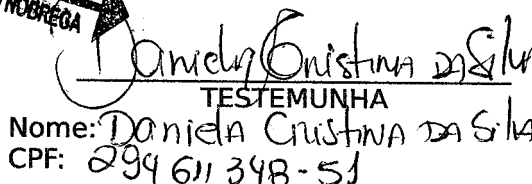 NOBREGA
Daniela Cristina da Silva
TESTEMUNHA
Nome: Daniela Cristina da Silva
CPF: 294 611 348-51